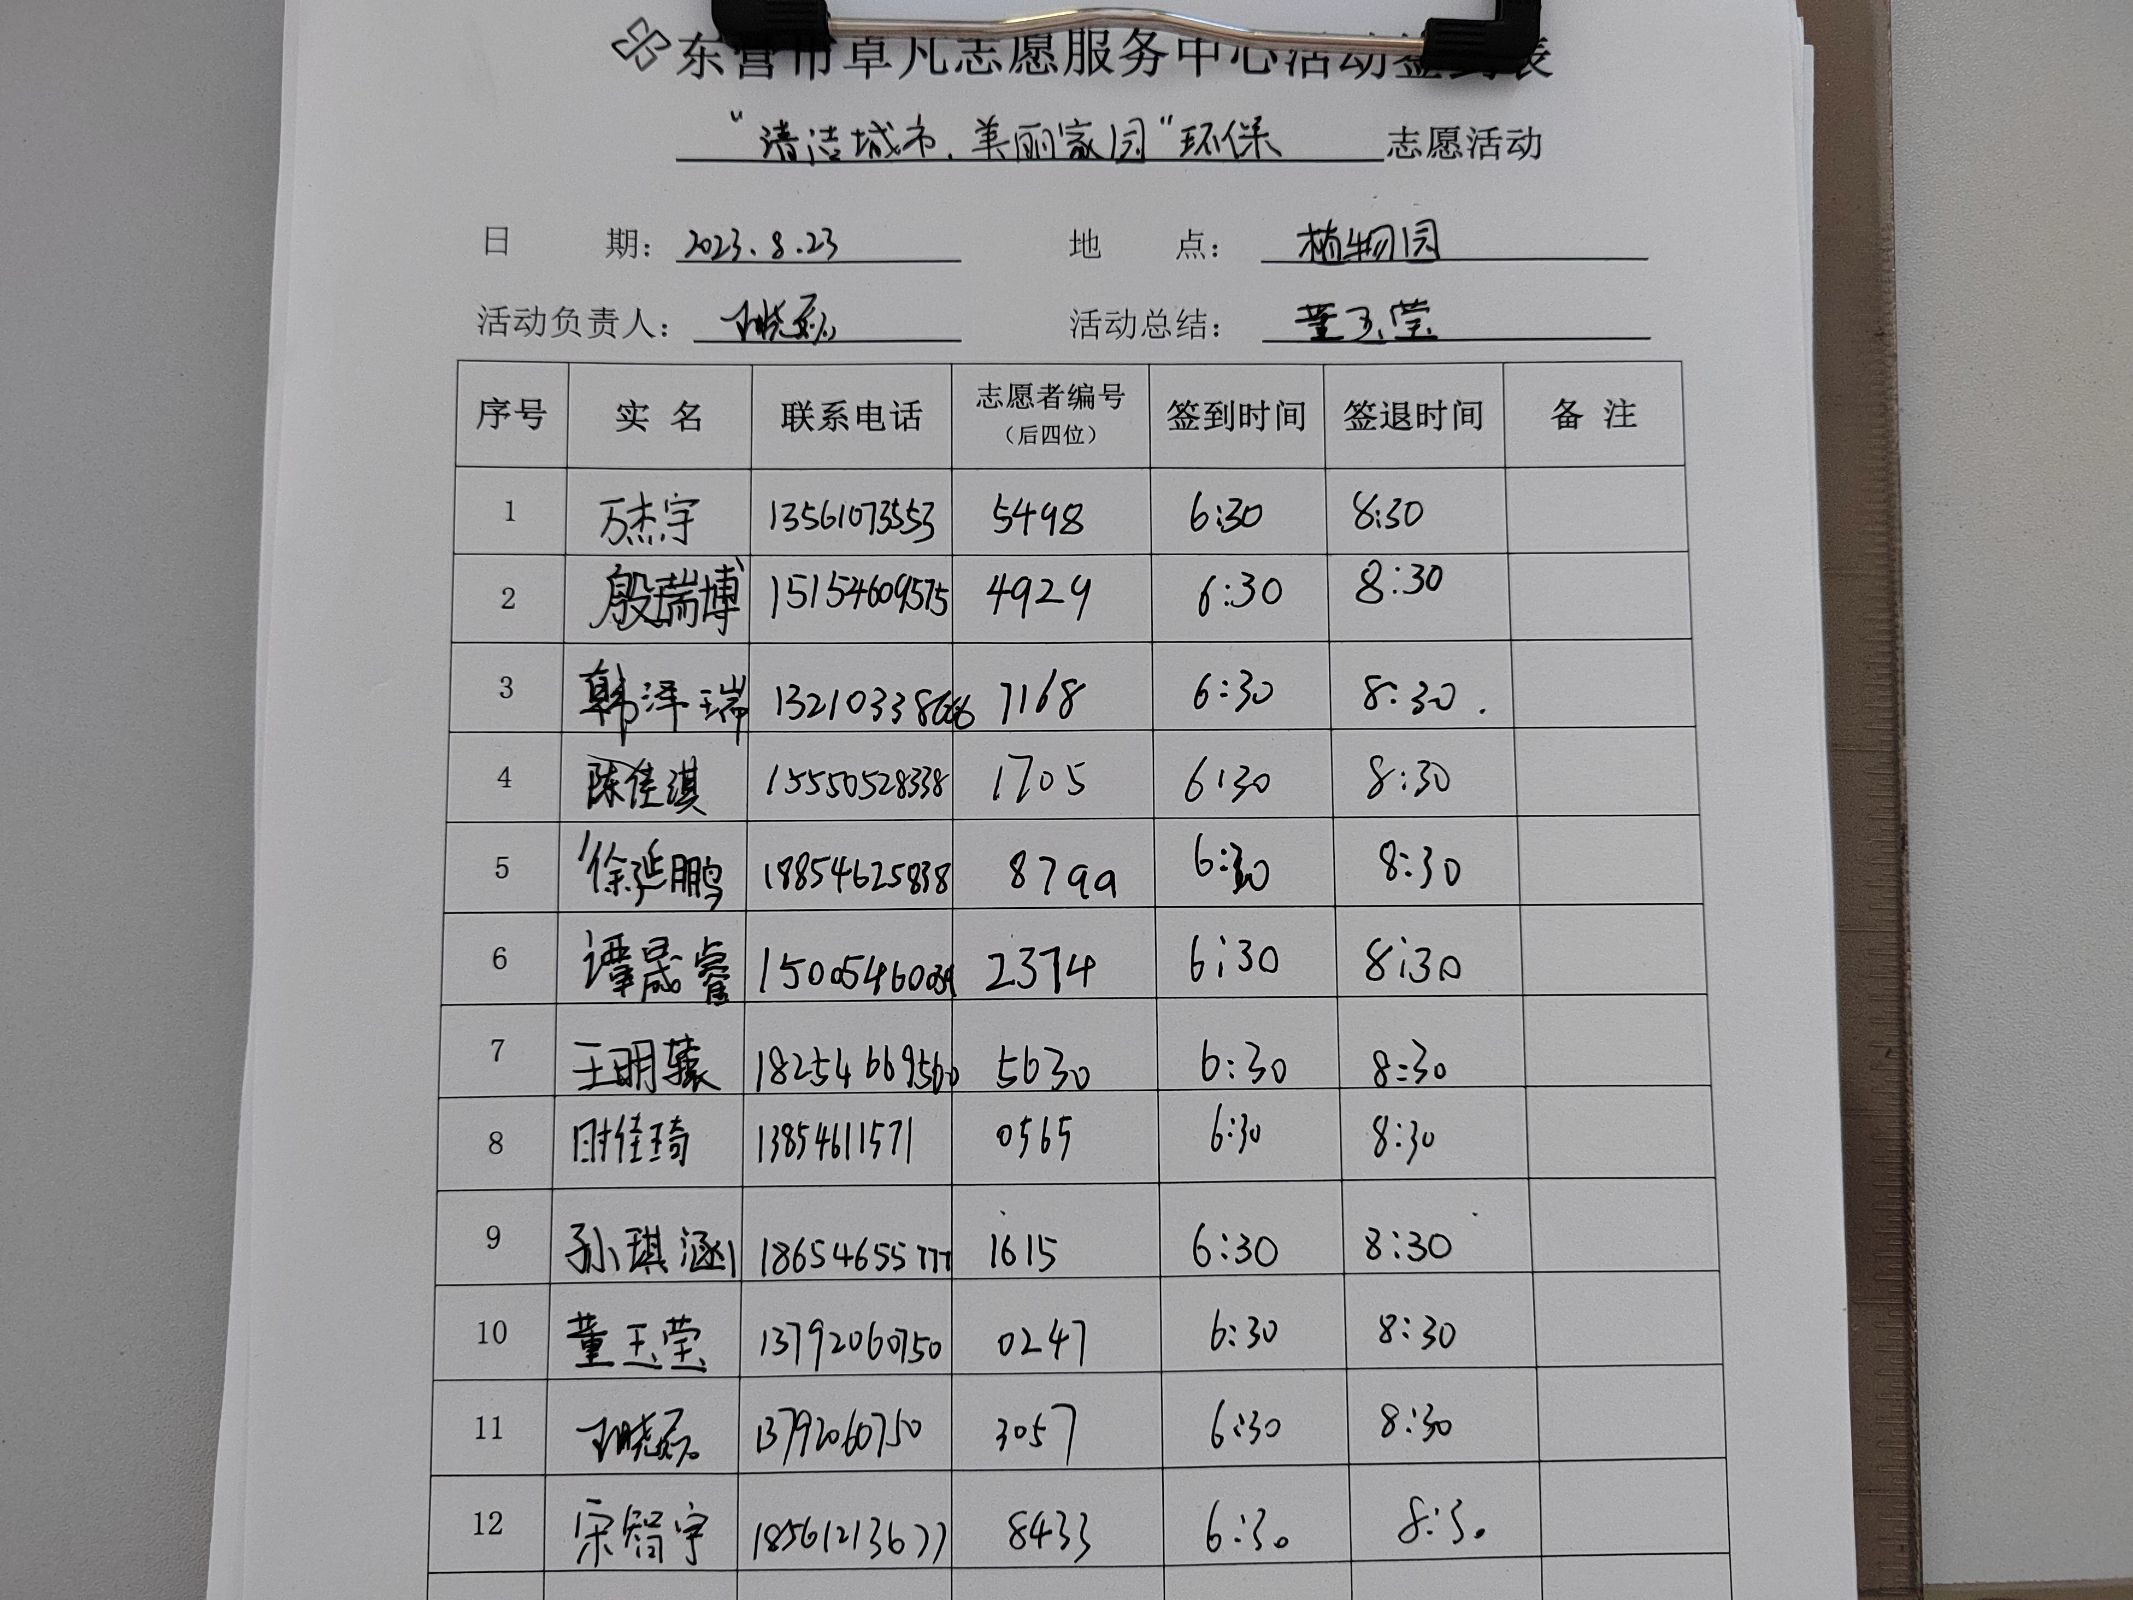 东营市卓凡志愿服务中心活动签到表
“清洁城市、美丽家园”环保 志愿活动
日 期: 2023.8.23 地 点: 植物园
活动负责人: 王晓磊 活动总结: 董玉莹
序号 实 名 联系电话 志愿者编号（后四位） 签到时间 签退时间 备 注
1 万杰宇 13561073553 5498 6:30 8:30
2 殷瑞博 15154609575 4929 6:30 8:30
3 韩泽瑞 7168 6:30 8:30.
4 陈佳淇 15550528338 1705 6:30 8:30
5 徐延鹏 18854625838 8799 6:30 8:30
6 谭晟睿 2374 6:30 8:30
7 王明辕 18254669560 5630 6:30 8:30
8 时佳琦 13854611571 0565 6:30 8:30
9 孙琪涵 18654655777 1615 6:30 8:30
10 董玉莹 13792060750 0247 6:30 8:30
11 王晓磊 13792060750 3057 6:30 8:30
12 宋智宇 18561213677 8433 6:30 8:30